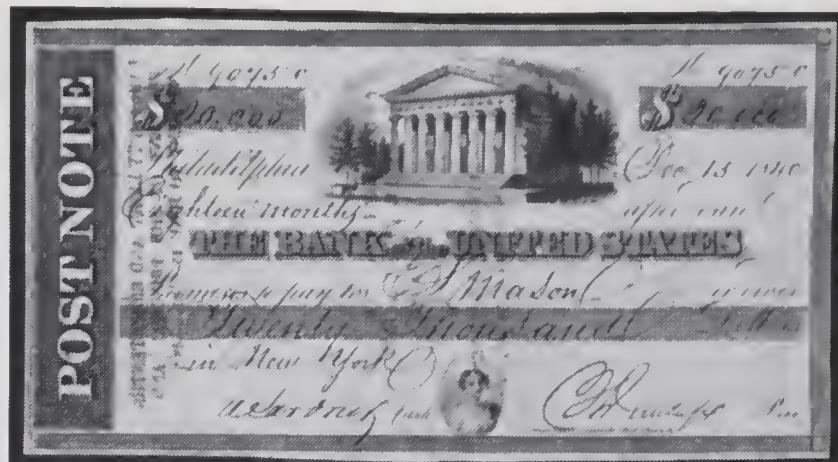 POST NOTE
No 9075 C No 9075 C
$20,000 $20,000
Philadelphia Dec 15 1840
Eighteen months after date
THE BANK OF THE UNITED STATES
Promises to pay to S Mason or order
Twenty Thousand Dollars
in New York
Cash Pres